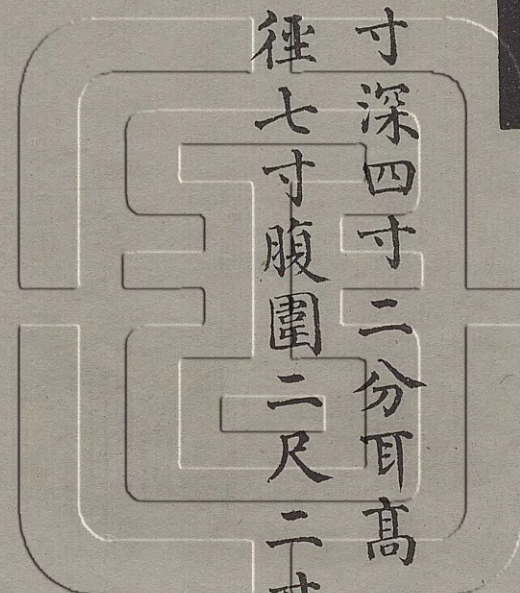 寸深四寸二分耳髙
徑七寸腹圍二尺二寸